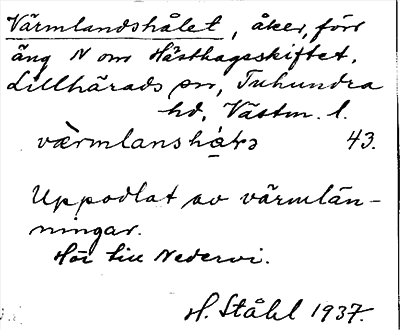 Värmlandshålet, åker, förr
äng N om Hästhageskiftet.
Lillhärads sn, Tuhundra
hd, Västm. l.
værmlanshå̀ḷə 43.
Uppodlat av värmlän-
ningar.
Hör till Nedervi.
H. Ståhl 1937.